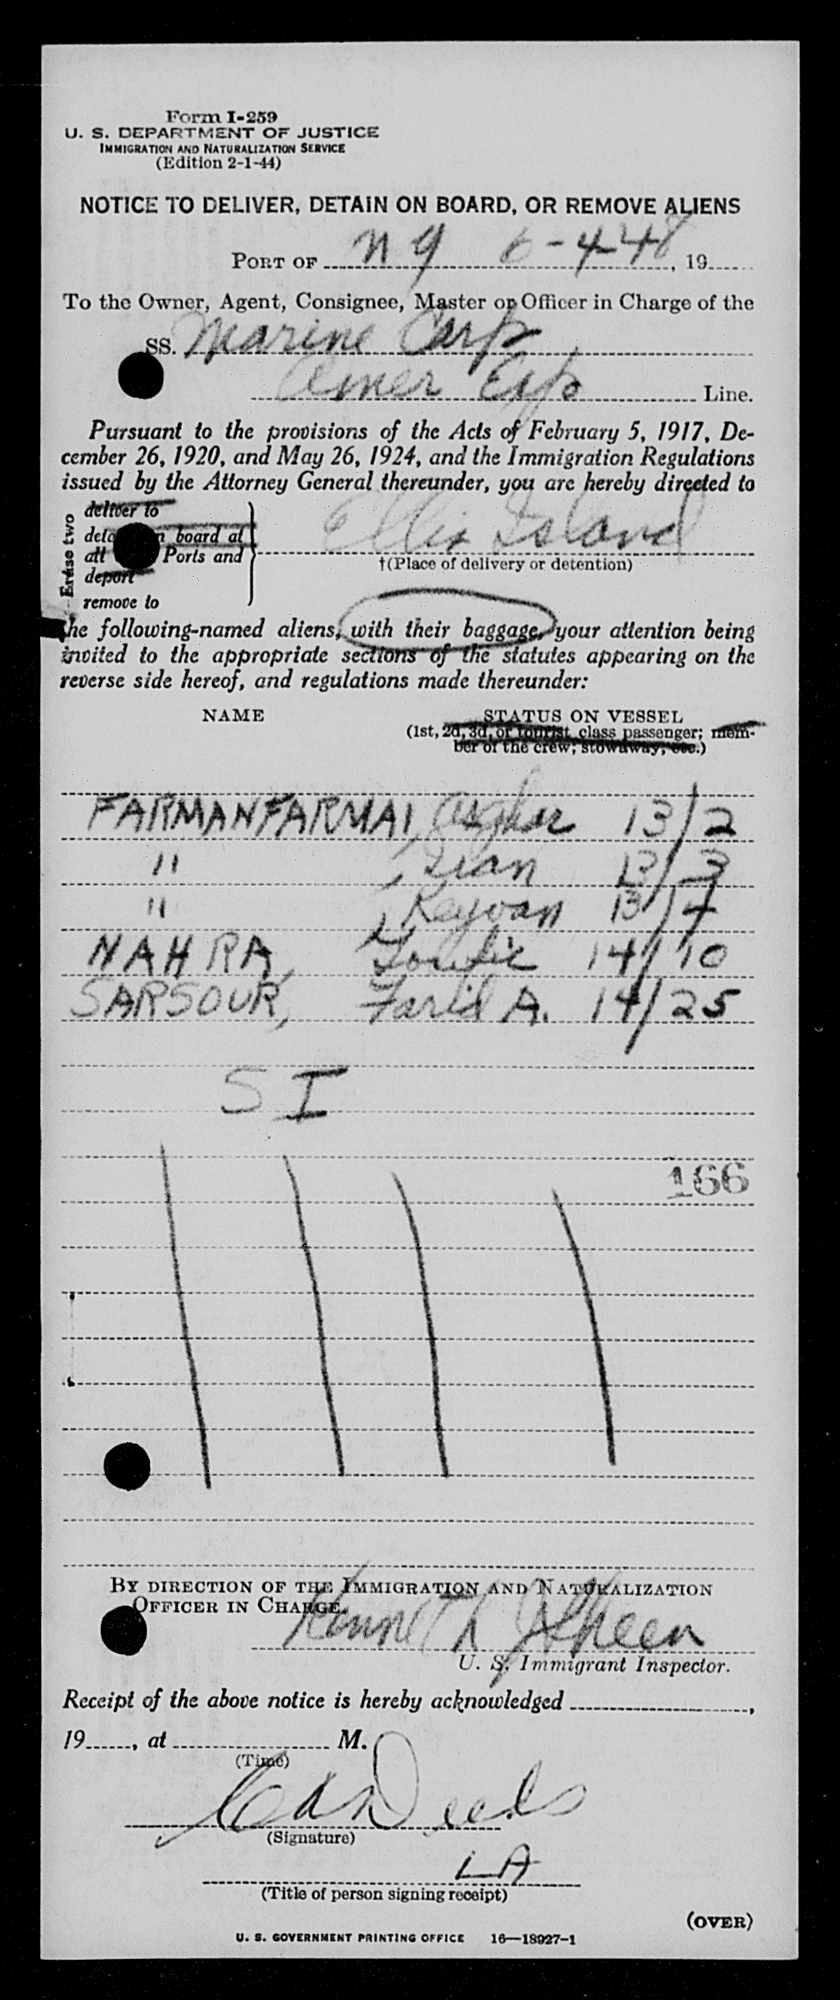 Form I-259
U. S. DEPARTMENT OF JUSTICE
IMMIGRATION AND NATURALIZATION SERVICE
(Edition 2-1-44)
NOTICE TO DELIVER, DETAIN ON BOARD, OR REMOVE ALIENS
PORT OF N Y 6-4-48, 19
To the Owner, Agent, Consignee, Master or Officer in Charge of the
SS. Marine Carp
Amer Exp Line.
Pursuant to the provisions of the Acts of February 5, 1917, De-
cember 26, 1920, and May 26, 1924, and the Immigration Regulations
issued by the Attorney General thereunder, you are hereby directed to
Erase two
deliver to
board at
all Ports and
deport
remove to
Ellis Island
†(Place of delivery or detention)
the following-named aliens, with their baggage, your attention being
invited to the appropriate sections of the statutes appearing on the
reverse side hereof, and regulations made thereunder:
NAME STATUS ON VESSEL
(1st, 2d, 3d, or tourist class passenger; mem-
ber of the crew; stowaway, etc.)
FARMANFARMAI, Asghar 13/2
" , 13/3
" , Keyvan 13/4
NAHRA, 14/10
SARSOUR, Farid A. 14/25
S I
166
BY DIRECTION OF THE IMMIGRATION AND NATURALIZATION
OFFICER IN CHARGE.
Kenneth
U. S. Immigrant Inspector.
Receipt of the above notice is hereby acknowledged
19, at M.
(Time)
(Signature)
LA
(Title of person signing receipt)
(OVER)
U. S. GOVERNMENT PRINTING OFFICE 16—18927-1